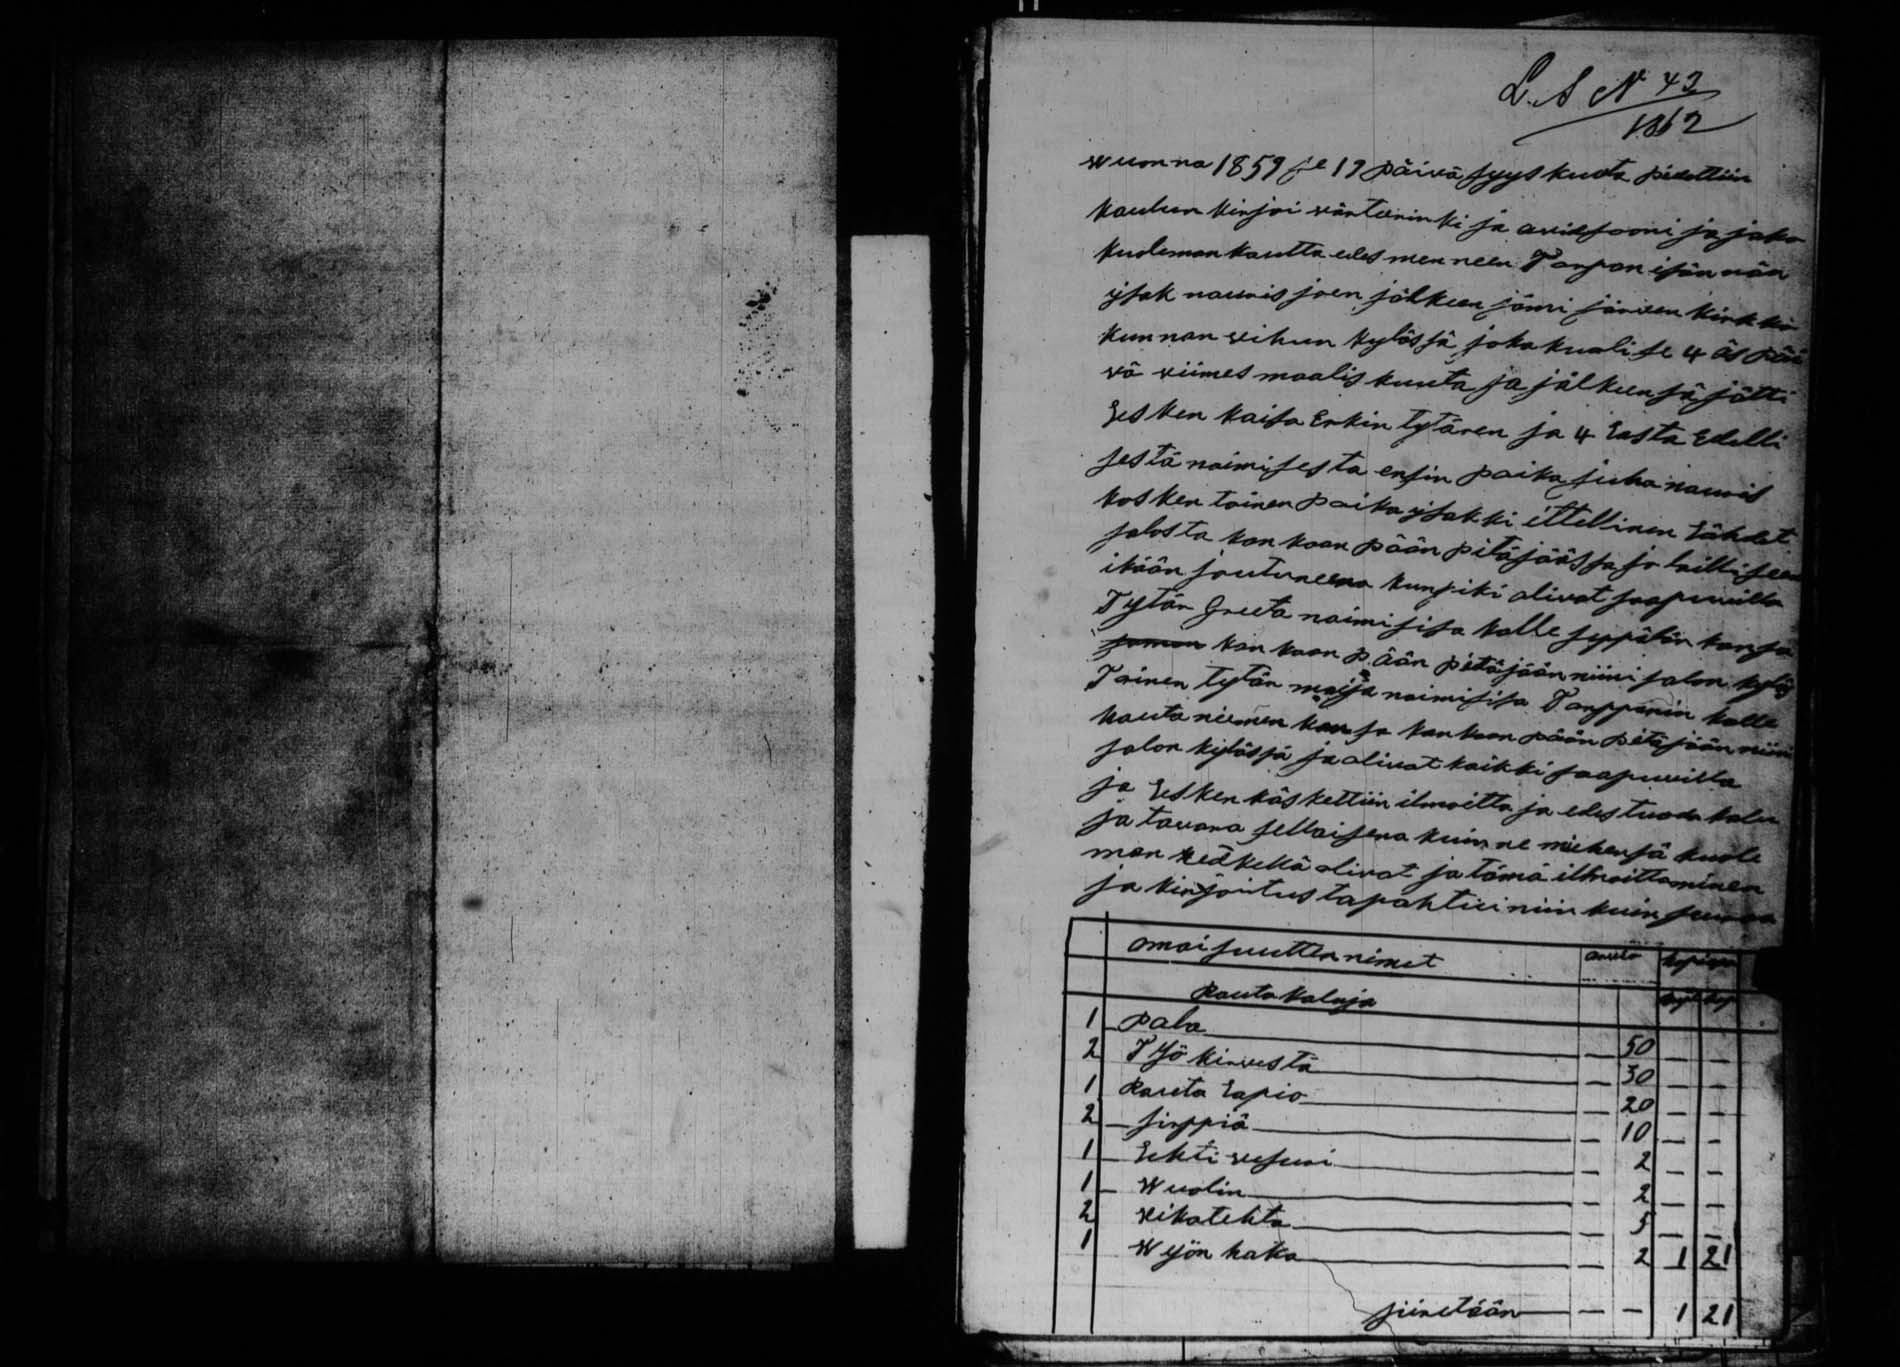 L. A N 42
1862
wuonna 1859 se 19 päivä syyskuuta pidettiin
kaulun kirjoi värteerinki ja avidsooni ja jako
kuoleman kautta edes menneen Tanpan isännän
ysak nauris joen jälkeen jämi järven kirkko
kunnan vihun kyläsä joka kuoli se 4 äs päi
vä viimes maalis kuuta ja jälkeensä jätti
Lesken kaisa Erkin tytären ja 4 Lasta Edelli
sestä naimisesta ensin poika juha nauris
kosken toinen poika ysakki ittellinen Lähdet
salosta kankaan pään pitäjääsä jo lailliseen
ikään joutuneena kumpiki olivat saapuvilla
Tytär greeta naimisisa kalle seppälän kansa
saman kankaan pään pitäjään niini salon kylä
Toinen tytär maija naimisisa Tanppanin kalle
hauta niemen kansa kankaan pään pitäjään niini
salon kyläsä ja olivat kaikki saapuvilla
ja Lesken käskettiin ilmoitta ja edes tuoda kalu
ja tavara sellaisena kuin ne miehensä kuole
man hetkellä olivat ja tämä ilmoittaminen
ja kirjoitus tapahtui niin kuin seuraa
omaisuutten nimet arvio
Rautakaluja
1 pata — 50 — —
2 Työ kirvestä — 30 — —
1 Rauta Lapio — 20 — —
2 sirppiä — 10 — —
1 Lehti vesuri — 2 — —
1 Wuolin — 2 — —
2 vikatehta — 5 — —
1 Wyön haka — 2 1 21
siiretään — — 1 21